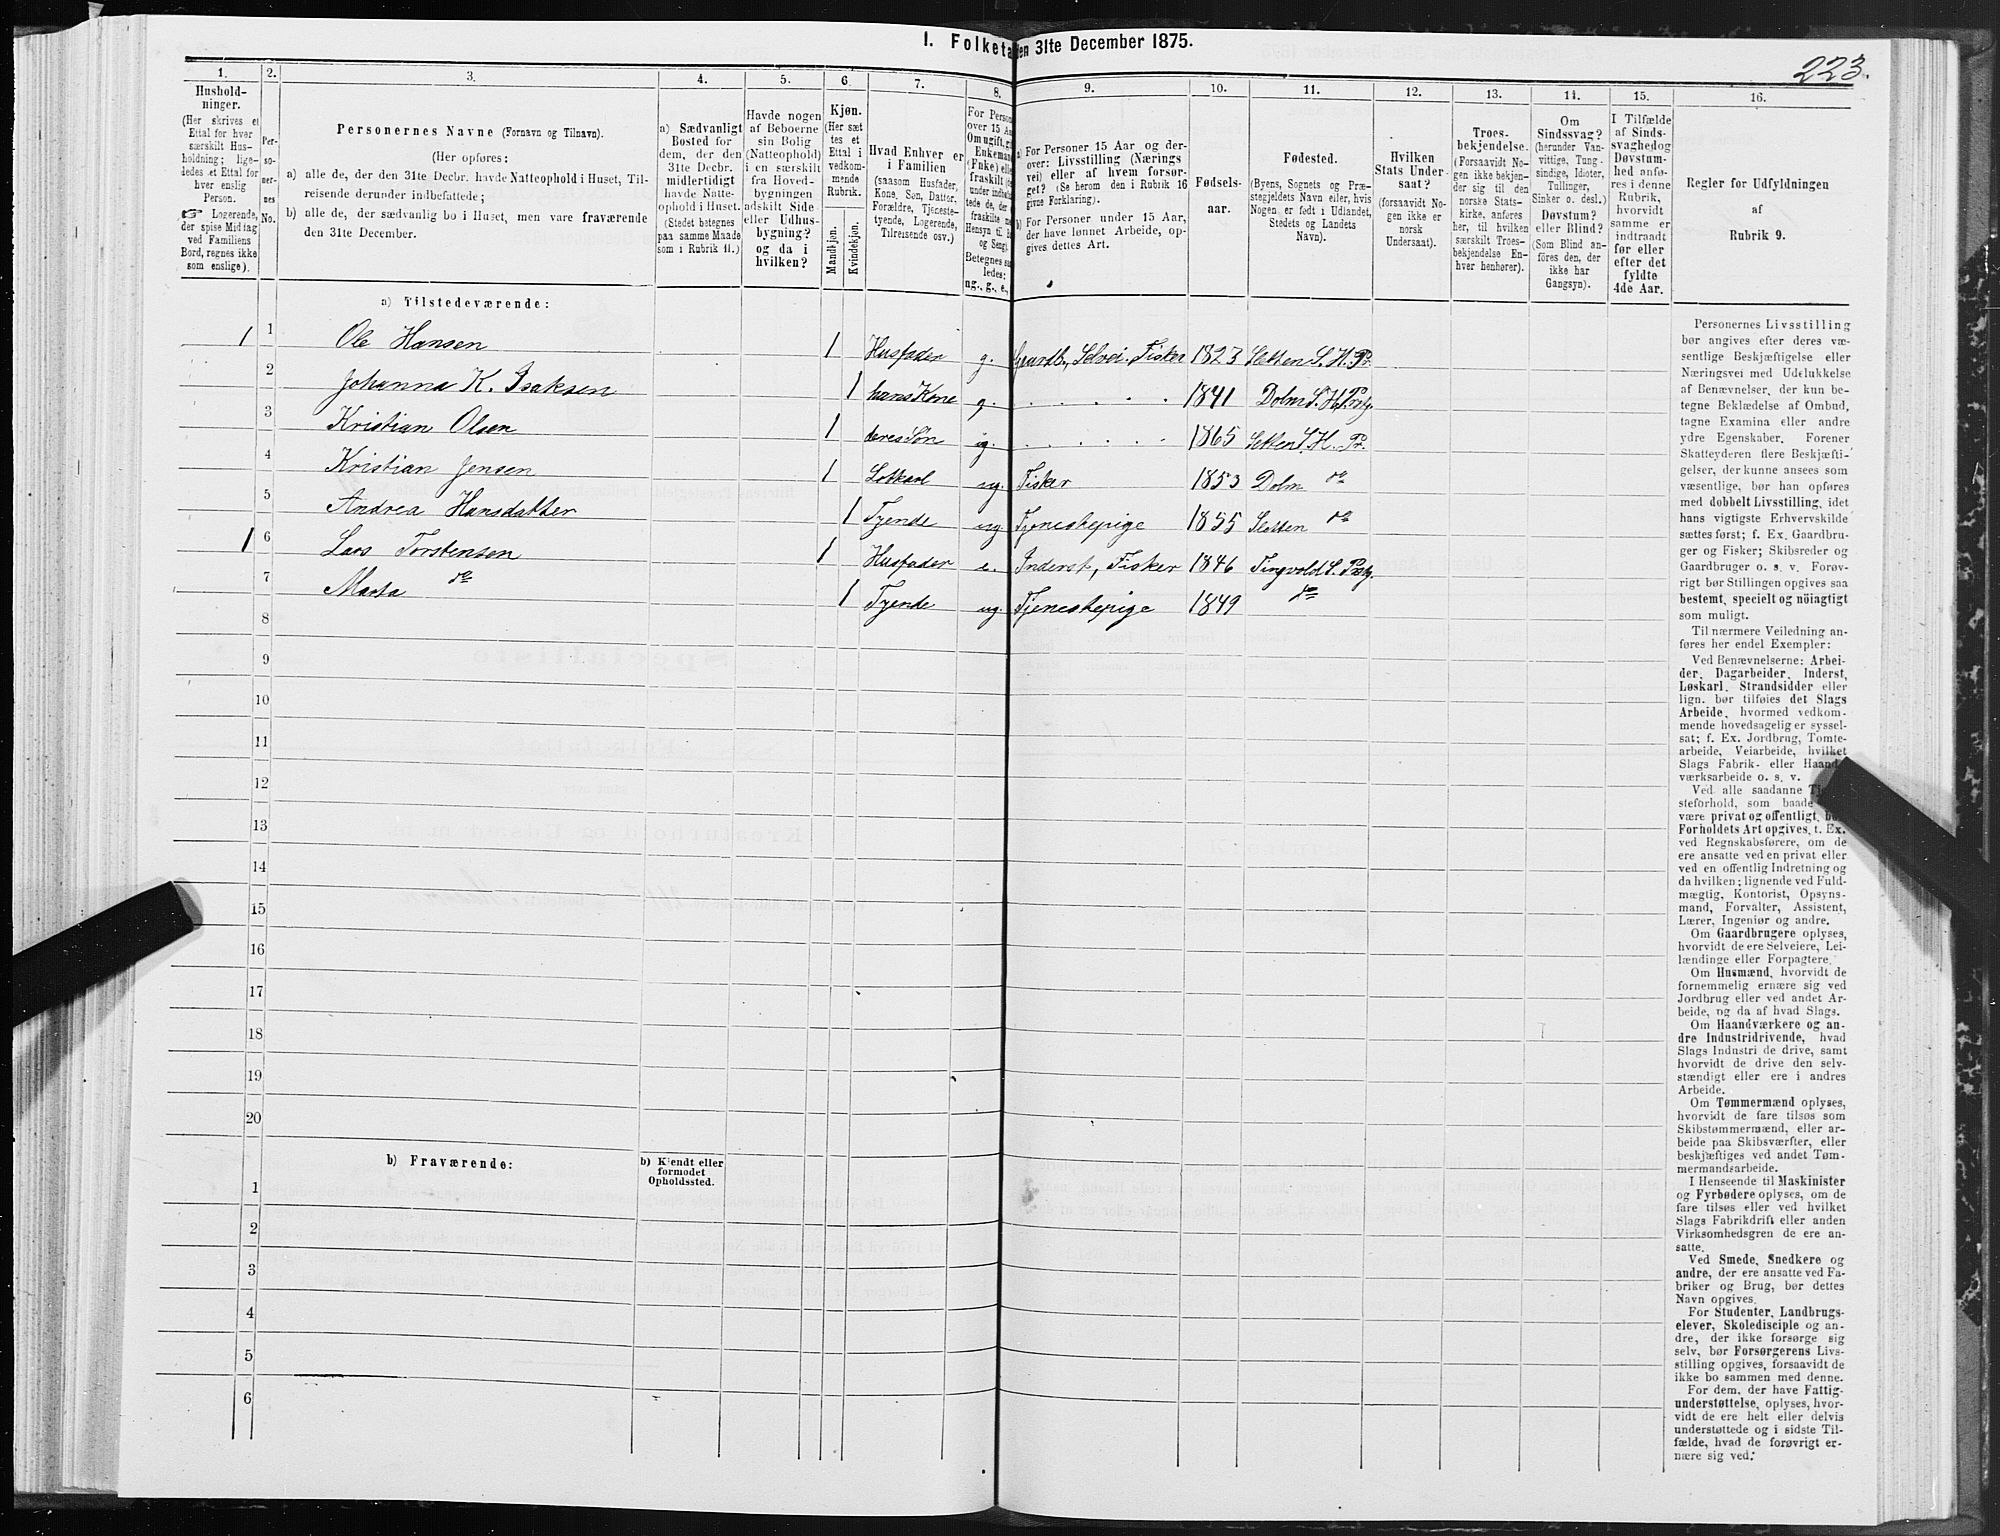 I. Folketa en 31te December 1875.
223.
1.
2.
3.
4.
5.
6
7.
8.
9.
10.
11.
12.
13.
14.
15.
16.
Hushold-
ninger.
(Her skrives et
Ettal for hver
særskilt Hus-
holdning; lige-
ledes et Ettal for
hver enslig
Person.
☞ Logerende,
der spise Middag
ved Familiens
Bord, regnes ikke
som enslige).
Per-
so-
ner-
nes
No.
Personernes Navne (Fornavn og Tilnavn).
(Her opføres:
a) alle de, der den 31te Decbr. havde Natteophold i Huset, Til-
reisende derunder indbefattede;
b) alle de, der sædvanlig bo i Huset, men vare fraværende
den 31te December.
a) Sædvanligt
Bosted for
dem, der den
31te Decbr.
midlertidigt
havde Natte-
ophold i Huset.
(Stedet betegnes
paa samme Maade
som i Rubrik 11.)
Havde nogen
af Beboerne
sin Bolig
(Natteophold)
i en særskilt
fra Hoved-
bygningen
adskilt Side-
eller Udhus-
bygning?
og da i
hvilken?
Kjøn.
(Her sæt-
tes et
Ettal i
vedkom-
mende
Rubrik.
Mandkjøn.
Kvindekjøn.
Hvad Enhver er
i Familien
(saasom Husfader,
Kone, Søn, Datter,
Forældre, Tjeneste-
tyende, Logerende,
Tilreisende osv.)
For Person
over 15 Aar
Om ugift, g
Enkemand
(Enke) eller
fraskilt
under indbe
tede de, der
fraskilte m
Hensyn til B
og Seng).
Betegnes saa
ledes:
ug., g., e.,
a) For Personer 15 Aar og der-
over: Livsstilling (Nærings
vei) eller af hvem forsør-
get? (Se herom den i Rubrik 16
givne Forklaring).
b) For Personer under 15 Aar,
der have lønnet Arbeide, op-
gives dettes Art.
Fødsels-
aar.
Fødested.
(Byens, Sognets og Præ-
stegjeldets Navn eller, hvis
Nogen er født i Udlandet,
Stedets og Landets
Navn).
Hvilken
Stats Under-
saat?
(forsaavidt No-
gen ikke er
norsk
Undersaat).
Troes-
bekjendelse.
(Forsaavidt No-
gen ikke bekjen-
der sig til den
norske Stats-
kirke, anføres
her, til hvilken
særskilt Troes-
bekjendelse En-
hver henhører).
Om
Sindssvag?
(herunder Van-
vittige, Tung-
sindige, Idioter,
Tullinger,
Sinker o. desl.)
Døvstum?
eller Blind?
(Som Blind an-
føres den, der
ikke har
Gangsyn).
I Tilfælde
af Sinds-
svaghed og
Døvstum-
hed anfø-
res i denne
Rubrik,
hvorvidt
samme er
indtraadt
før eller
efter det
fyldte
4de Aar.
Regler for Udfyldningen
af
Rubrik 9.
a) Tilstedeværende:
1 1 Ole Hansen 1 Husfader g. Gaardb., Selvei. Fisker 1823 Sletten S. H. Pr.
2 Johanna K. Isaksen 1 hans Kone g. 1841 Dolm S. H. Prstg.
3 Kristian Olsen 1 deres Søn ug. 1865 Sletten S. H. Pr.
4 Kristian Jensen 1 Loskarl ug. Fisker 1853 Dolm do
5 Andrea Hansdatter 1 Tyende ug. Tjenestepige 1855 Sletten do
1 6 Lars Torstensen 1 Husfader e. Inderst, Fisker 1846 Tingvold S. Prstg.
7 Marta do 1 Tyende ug. Tjenestepige 1849 do
8
9
10
11
12
13
14
15
16
17
18
19
20
b) Fraværende:
b) Kjendt eller
formodet
Opholdssted.
1
2
3
4
5
6
Personernes Livsstilling
bør angives efter deres væ-
sentlige Beskjæftigelse eller
Næringsvei med Udelukkelse
af Benævnelser, der kun be-
tegne Beklædelse af Ombud,
tagne Examina eller andre
ydre Egenskaber. Forener
Skatteyderen flere Beskjæfti-
gelser, der kunne ansees som
væsentlige, bør han opføres
med dobbelt Livsstilling, idet
hans vigtigste Erhvervskilde
sættes først; f. Ex. Gaardbru-
ger og Fisker; Skibsreder og
Gaardbruger o. s. v. Forøv-
rigt bør Stillingen opgives saa
bestemt, specielt og nöiagtigt
som muligt.
Til nærmere Veiledning an-
føres her endel Exempler:
Ved Benævnelserne: Arbei-
der, Dagarbeider, Inderst,
Løskarl, Strandsidder eller
lign. bør tilføies det Slags
Arbeide, hvormed vedkom-
mende hovedsagelig er syssel-
sat; f. Ex. Jordbrug, Tomte-
arbeide, Veiarbeide, hvilket
Slags Fabrik- eller Haand-
værksarbeide o. s. v.
Ved alle saadanne
steforhold, som baade
være privat og offentligt,
Forholdets Art opgives, f. Ex.
ved Regnskabsførere, om de
ere ansatte ved en privat eller
ved en offentlig Indretning og
da hvilken; lignende ved Fuld-
mægtig, Kontorist, Opsyns-
mand, Forvalter, Assistent,
Lærer, Ingeniør og andre.
Om Gaardbrugere oplyses,
hvorvidt de ere Selveiere, Lei-
lændinge eller Forpagtere.
Om Husmænd, hvorvidt de
fornemmelig ernære sig ved
Jordbrug eller ved andet Ar-
beide, og da af hvad Slags.
Om Haandværkere og an-
dre Industridrivende, hvad
Slags Industri de drive, samt
hvorvidt de drive den selv-
stændigt eller ere i andres
Arbeide.
Om Tømmermænd oplyses,
hvorvidt de fare tilsøs som
Skibstømmermænd, eller ar-
beide paa Skibsværfter, eller
beskjæftiges ved andet Tøm-
mermandsarbeide.
I Henseende til Maskinister
og Fyrbødere oplyses, om de
fare tilsøs eller ved hvilket
Slags Fabrikdrift eller anden
Virksomhedsgren de ere an-
satte.
Ved Smede, Snedkere og
andre, der ere ansatte ved Fa-
briker og Brug, bør dettes
Navn opgives.
For Studenter, Landbrugs-
elever, Skoledisciple og an-
dre, der ikke forsørge sig
selv, bør Forsørgerens Livs-
stilling opgives, forsaavidt de
ikke bo sammen med denne.
For dem, der have Fattig-
understøttelse, oplyses, hvor-
vidt de ere helt eller delvis
understøttede og i sidste Til-
fælde, hvad de forøvrigt er-
nære sig ved.